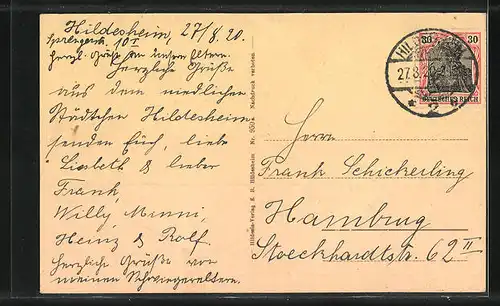 Hildesheim, 27/8. 20.
Sprengerstr. 10 I
Herzl. Grüße an unsere Eltern.
Herzliche Grüße
aus dem niedlichen
Städtchen Hildesheim
senden Euch, liebe
Lisbeth & lieber
Frank,
Willy Minni,
Heinz & Rolf.
Herzliche Grüße von
meinen Schwiegereltern.
Nachdruck verboten.
Hildesheim
Herrn
Frank Schickerling
Hamburg
Stoeckhardtstr. 62 II
30 30
DEUTSCHES REICH
27.8.20
* 2